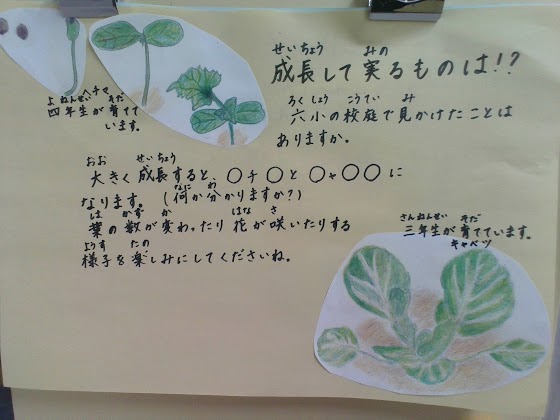 成長して実るものは!?
せいちょう みの
六小の校庭で見かけたことは
ろくしょう こうてい み
ありますか。
ヘチマ
よねんせい そだ
四年生が育てて
います。
おお せいちょう
大きく成長すると、〇チ〇と〇ャ〇〇に
なに わ
なります。(何か分かりますか?)
は かず か はな さ
葉の数が変わったり花が咲いたりする
ようす たの
様子を楽しみにしてくださいね。
さんねんせい そだ
三年生が育てています。
キャベツ